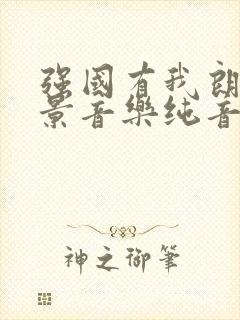 强國有我朗
景音樂纯音
神之御筆